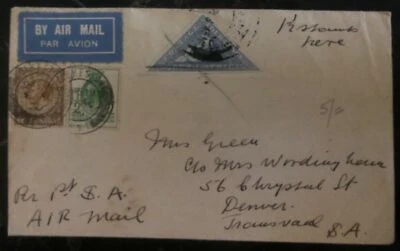 BY AIR MAIL
PAR AVION
here
5/a
Mrs Green
C/o Mrs Wordingham
56 Chrystal St
Denver.
Transvaal
S.A.
Per Pt S.A.
AIR Mail